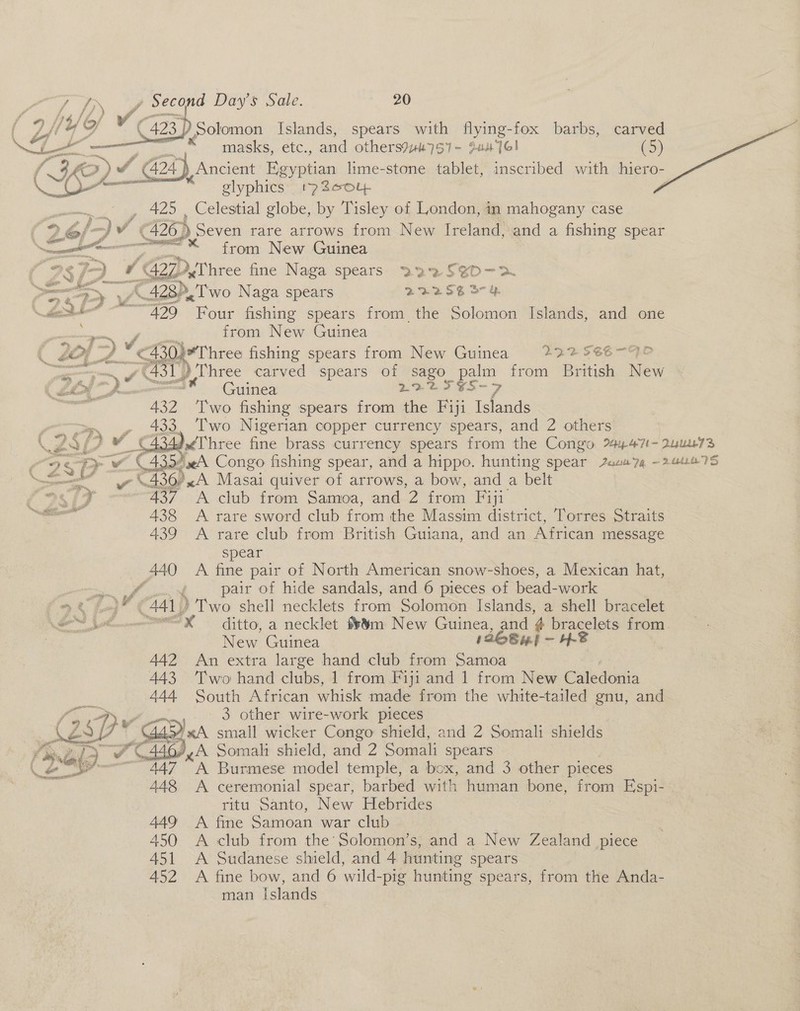 Second Day's Sale. 20
423 Solomon Islands, spears with flying-fox barbs, carved
masks, etc., and others (5)
424 Ancient Egyptian lime-stone tablet, inscribed with hiero-
glyphics
425 Celestial globe, by Tisley of London, in mahogany case
26/- 426 Seven rare arrows from New Ireland, and a fishing spear
from New Guinea
427 Three fine Naga spears 222580-2
428 Two Naga spears 222583-4
429 Four fishing spears from the Solomon Islands, and one
from New Guinea
430 Three fishing spears from New Guinea 222588-90
431 Three carved spears of sago palm from British New
Guinea 222585-7
432 Two fishing spears from the Fiji Islands
433 Two Nigerian copper currency spears, and 2 others
434 Three fine brass currency spears from the Congo
435 A Congo fishing spear, and a hippo. hunting spear
436 A Masai quiver of arrows, a bow, and a belt
437 A club from Samoa, and 2 from Fiji
438 A rare sword club from the Massim district, Torres Straits
439 A rare club from British Guiana, and an African message
spear
440 A fine pair of North American snow-shoes, a Mexican hat,
pair of hide sandals, and 6 pieces of bead-work
441 Two shell necklets from Solomon Islands, a shell bracelet
ditto, a necklet from New Guinea, and bracelets from
New Guinea
442 An extra large hand club from Samoa
443 Two hand clubs, 1 from Fiji and 1 from New Caledonia
444 South African whisk made from the white-tailed gnu, and
3 other wire-work pieces
445 A small wicker Congo shield, and 2 Somali shields
446 A Somali shield, and 2 Somali spears
447 A Burmese model temple, a box, and 3 other pieces
448 A ceremonial spear, barbed with human bone, from Espi-
ritu Santo, New Hebrides
449 A fine Samoan war club
450 A club from the Solomon's, and a New Zealand piece
451 A Sudanese shield, and 4 hunting spears
452 A fine bow, and 6 wild-pig hunting spears, from the Anda-
man Islands